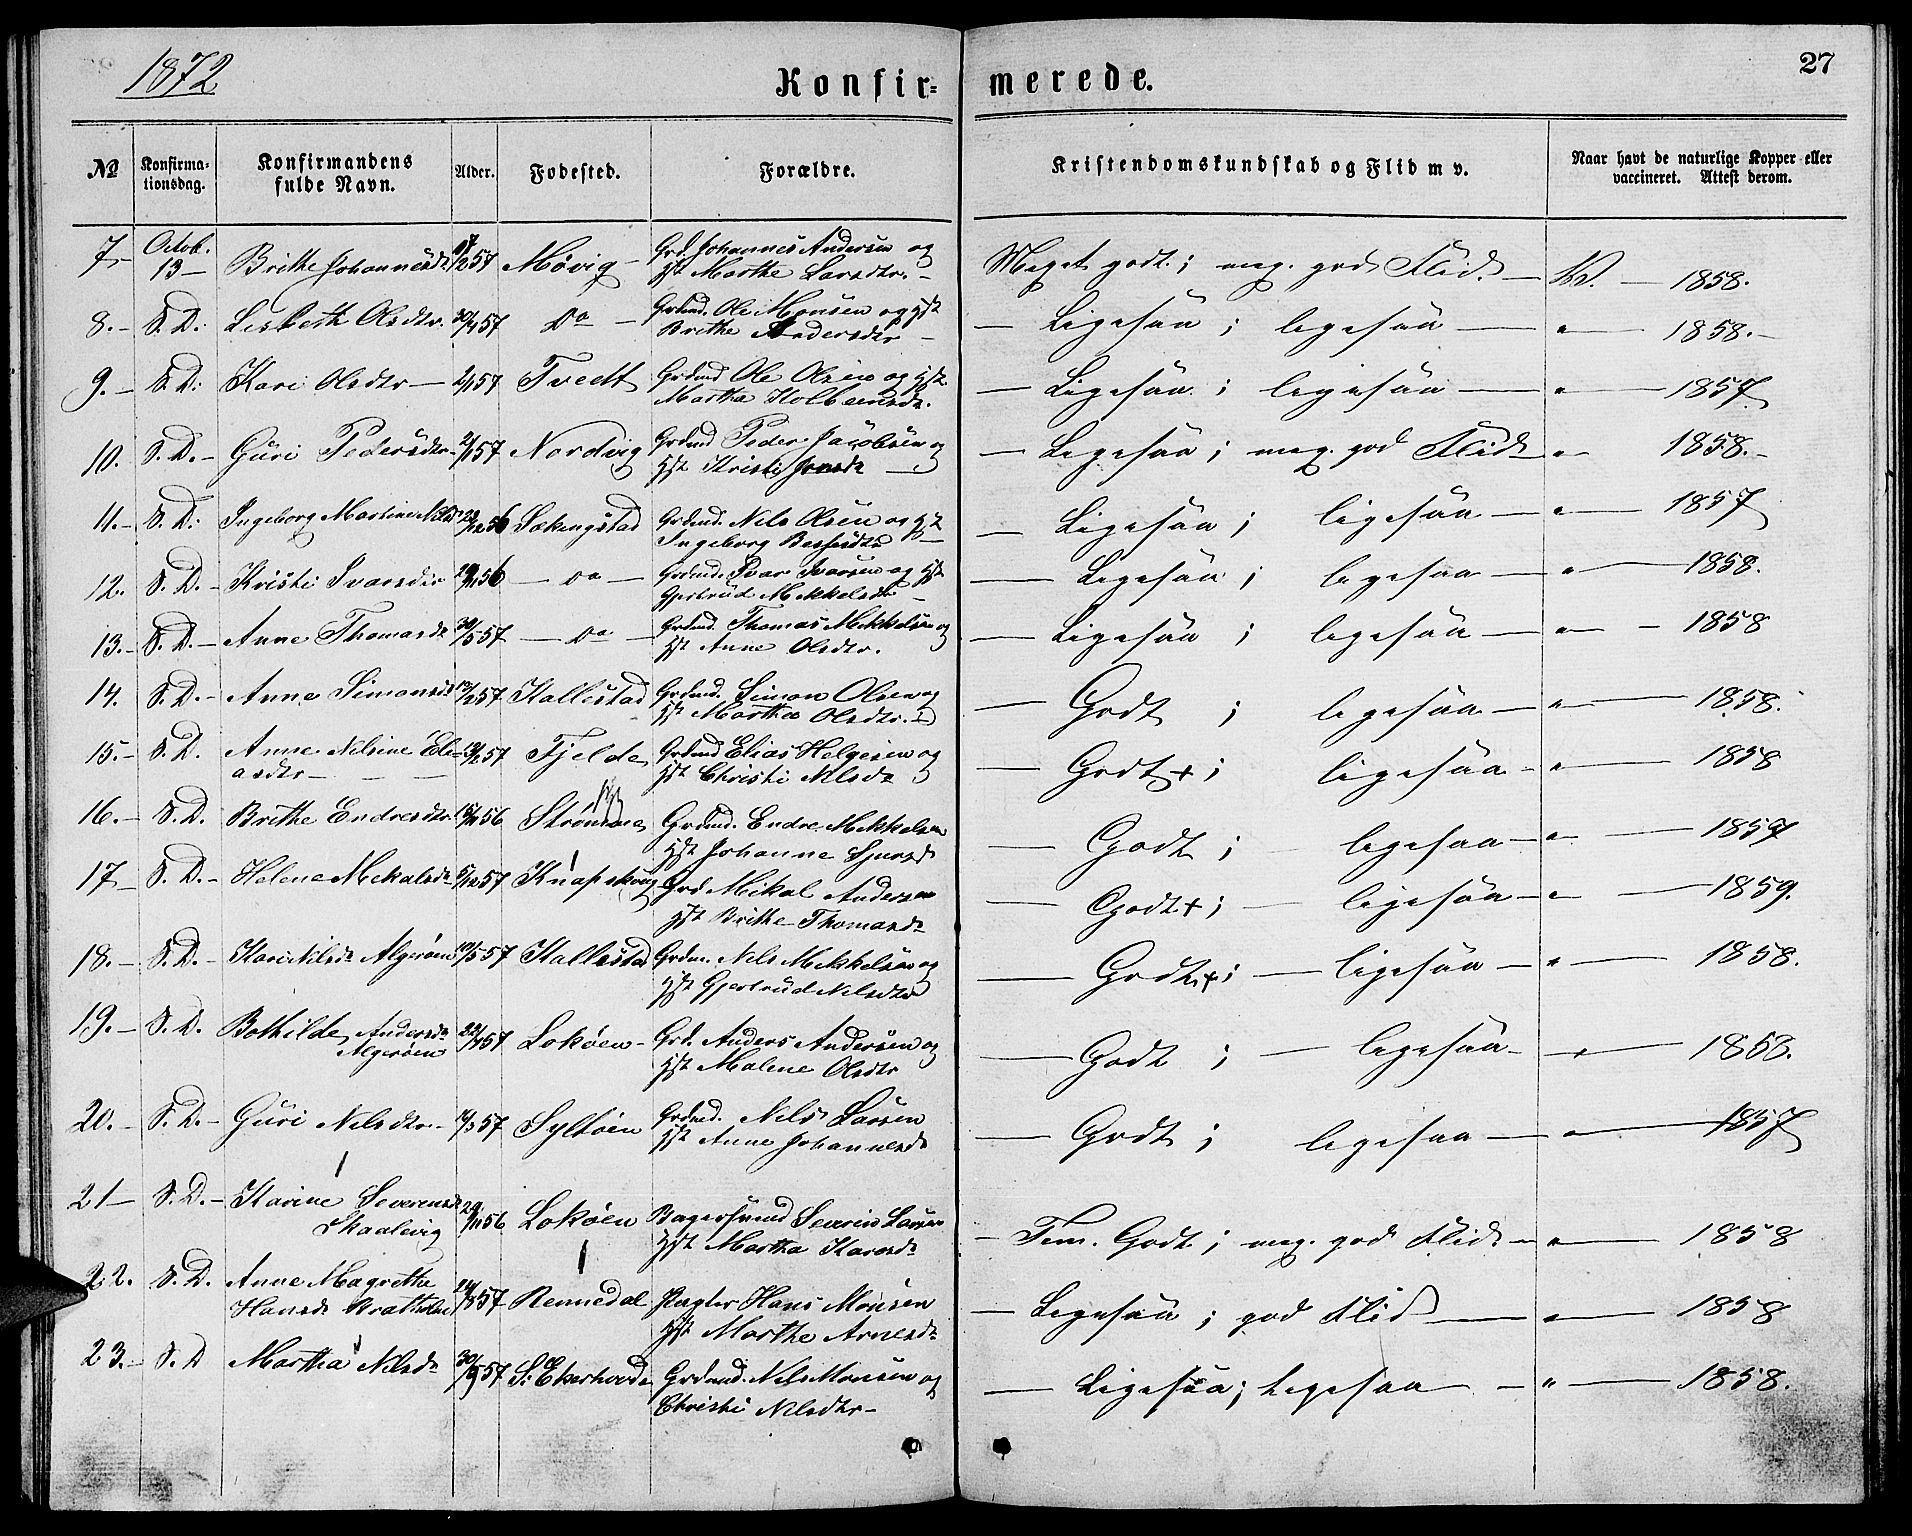 1872
Konfir=
merede.
27
No
Konfirma-
tionsdag.
Konfirmandens
fulde Navn.
Alder.
Fødested.
Forældre.
Kristendomskundskab og Flid m v.
Naar havt de naturlige Kopper eller
vaccineret. Attest derom.
7 Octob. 13 — Brithe Johannesdr 57 Møvig — Grd. Johannes Andersen og
Hst Marthe Larsdtr. — Meget godt; meg. god Flid — W. — 1858.
8. — S. D. Lisbeth Olsdtr. 57 Do — Grdmd. Ole Monsen og Hst
Brithe Andersdtr — Ligesaa; ligesaa — " — 1858. —
9. — S. D: Kari Olsdtr — 57 Tvedt Grdmd Ole Olsen og Hst
Marthe Kolbeinsdr. — Ligesaa; ligesaa — " — 1857
10. S. D. — Guri Pedersdtr 57 Nordvig Grdmd Peder Jacobsen og
Hst Kristi Jonsdr — Ligesaa; meg. god Flid " 1858. —
11. — S. D: Ingeborg Martine Nilsd 56 Sekingstad Grdmd. Nils Olsen og Hst
Ingeborg — Ligesaa; ligesaa — " — 1857
12. S. D. — Kristi Ivarsdtr 56 — Do — Grdmd. Ivar Ivarsen og Hst
Gjertrud Mikkelsdr — Ligesaa; ligesaa — " — 1858.
13. — S. D. — Anne Thomasdr 30/5 57 — Do — Grdmd. Thomas Mikkelsen og
Hst Anne Olsdtr. — Ligesaa; ligesaa — " — 1858
14. S. D. — Anna Simonsdr 57 Kallestad Grdmd. Simon Olsen og
Hst Martha Olsdtr. — Godt; ligesaa — " — 1858.
15. — S. D. Anne Nilsine Eli-
asdtr — 57 Fjelde Grdmd Elias Helgesen og
Hst Christi Nilsdr — Godt+; ligesaa — " — 1858
16. — S. D. Brithe Endresdtr. 56 Strømme Grdmd. Endre Mikkelsen
Hst Johanne Sjursdr — Godt; ligesaa — " — 1859
17 — S. D. — Helene Mikalsdr 57 Knapskog Grd Mikal Andersen
Hst Brithe Thomasdr — Godt+; — ligesaa — " — 1859.
18. — S. D. — Kari Nilsdr Algerøen 57 Kallestad Grdm. Nils Mikkelsen og
Hst Gjertrud Nilsdtr — Godt+; — ligesaa — " — 1858.
19. — S. D. Bothilde Andersdr
Algerøen 57 Lokøen — Grd. Anders Andersen og
Hst Malene Olsdtr — Godt; — ligesaa — " — 1858.
20. — S. D. — Guri Nilsdtr — 57 Syltøen Grdmd. Nils Larsen
Hst Anne Johannesdr — Godt; ligesaa — " — 1857
21 — S. D. — Karine Severinsdr
Skaalevig 56 Lokøen Bagersvend Severin Larsen
Hst Martha — Tem. Godt; meg. god Flid — " — 1858
22. S. D. Anne Magrethe
Hansdr Bratholm 57 Rennedal Pagter Hans Monsen
Hst Marthe Arnesdr — Ligesaa; god Flid — " — 1858
23. — S. D Martha Nilsdr 57 S: Ekerhovde Grdmd. Nils Monsen og
Christi Nilsdtr — — Ligesaa; ligesaa — " — 1858.